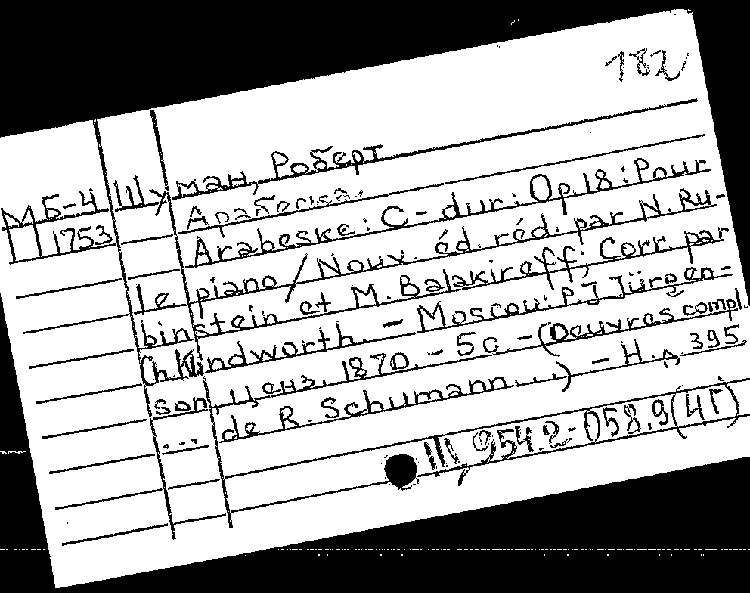 182
М Б-4 Шуман, Роберт
П 1753 Арабеска.
Arabeske: C-dur: Op.18: Pour
le piano / Nouv. éd. réd. par N. Ru-
binstein et M. Balakireff; Corr. par
Ch. Klindworth. – Moscou: P.J Jürgen-
son, ценз. 1870. – 5с – (Oeuvres compl.
... de R. Schumann...) – Н.д. 395
Ш, 954.2-058.9(4Г)